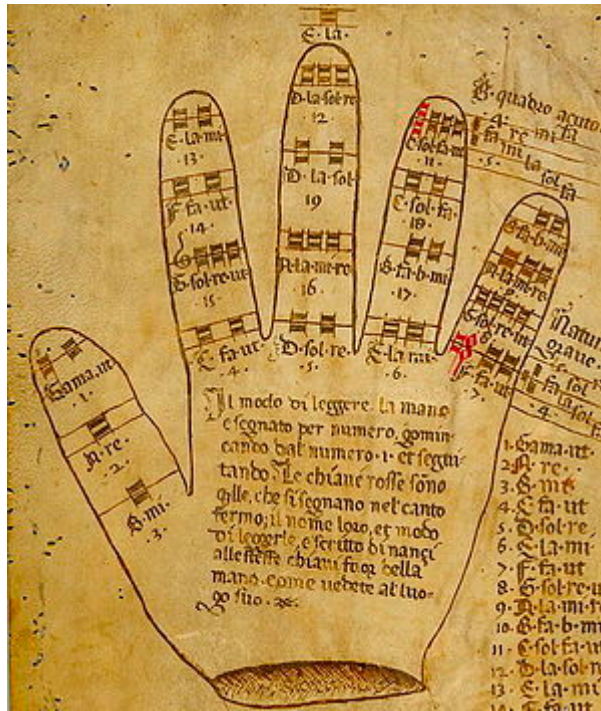 E la
D·la·sol·re
12
D·la·sol
19
A·la·mi·re
·16·
D·sol·re·
·5·
E·la·mi
·13·
F·fa·ut
·14·
G·sol·re·ut
·15·
C·fa·ut
·4·
C·sol·fa·ut
·11·
C·sol·fa·
·18·
B·fa·b·mi
·17·
E·la·mi
·6·
B·fa·b·mi
A·la·mi·re
G·sol·re·ut
8
F·fa·ut
·7·
Gama·ut
·1·
A·re·
·2·
B·mi·
·3·
B·quadro acuto
·4· re mi fa
fa mi la sol fa
·5·
Natura
grave·
sol
fa
la sol fa
·4·
Il modo di leggere la mano
e segnato per numero, comin
cando dal numero·1· et segui
tando· Le chiavi rosse sono
qlle, che si segnano nel canto
fermo; il nome loro, et modo
di leggerle, e scritto dinanci
alle stesse chiavi fuor della
mano·come vedete al luo·
go suo·
1·Gama·ut·
2·A·re·
3·B·mi
4·C·fa·ut
5·D·sol·re·
6·E·la·mi·
7·F·fa·ut
8·G·sol·re·u
9·A·la·mi·r
10·B·fa·b·m
11·C·sol·fa·u
12·D·la·sol·r
13·E·la·mi
14·F·fa·ut